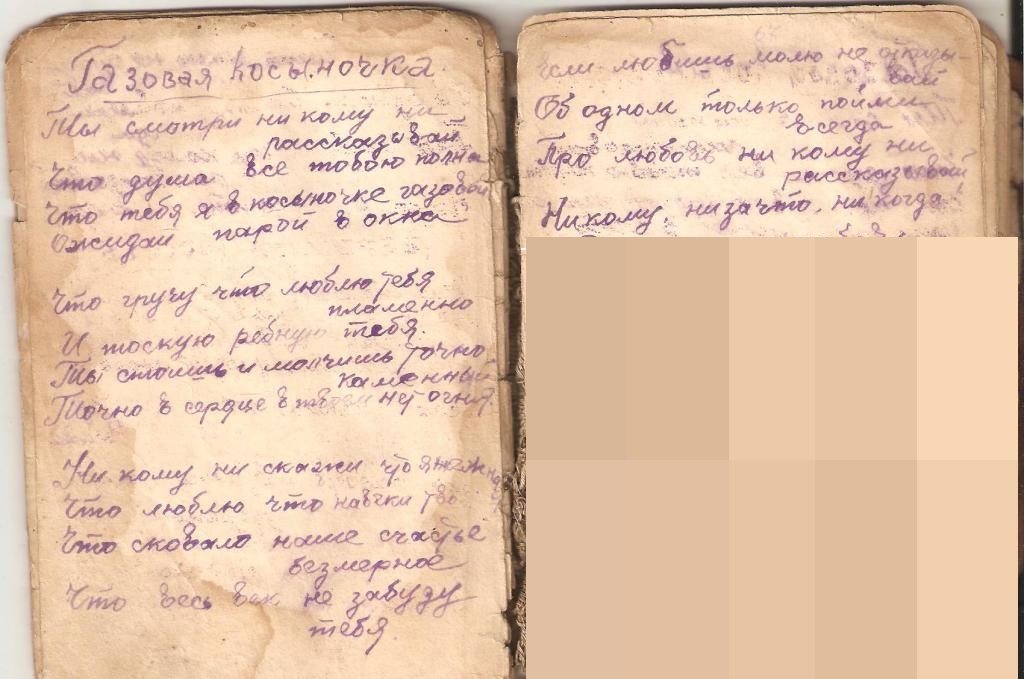 Газовая косыночка
Ты смотри ни кому ни
рассказывай
Что душа все тобою полна
Что тебя я в косыночке газовой
Ожидаю парой в окна
Что грущу что люблю тебя
пламенно
И тоскую ребную тебя.
Ты стоишь и молчишь точно
каменный
Точно в сердце в нет огня
Ни кому ни скажи что я
Что люблю что навеки
Что сковало наше счастье
безмерное
Что весь век не забуду
тебя.
Если любишь молю не отклады-
вай
Об одном только пойми
всегда
Про любовь ни кому ни
рассказывай
Никому, низачто, ни когда